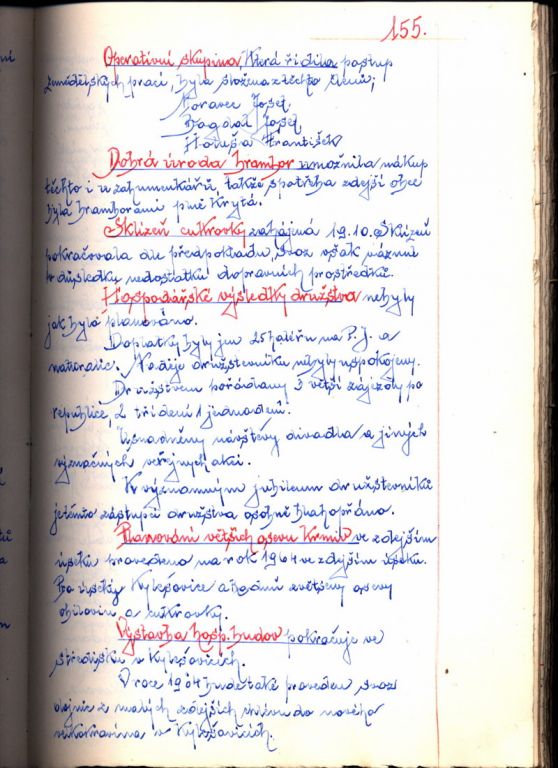 155.
Operativní skupina, která řídila postup
zemědělských prací, byla složena z těchto členů;
Moravec Josef.
Bogdol Josef
Holuša František
Dobrá úroda brambor umožnila nákup
těchto i u záhumenkářů, takže spotřeba zdejší obce
byla bramborami plně krytá.
Sklizeň cukrovky zahájená 19.10. Sklizeň
pokračovala dle předpokladu, svoz však váznul
v důsledku nedostatku dopravních prostředků.
Hospodářské výsledky družstva nebyly
jak bylo plánováno.
Doplatky byly jen 25 haléřů na P.J. a
naturálie. Naděje družstevníků nebyly uspokojeny.
Družstvem pořádány 3 větší zájezdy po
republice, 2 třídení 1 jednodenní.
Usnadněny návštěvy divadla a jiných
význačných veřejných akcí.
K významným jubileum družstevníků
jetěmto zástupci družstva osobně blahopřáno.
Plánování větších osevu krmiv ve zdejším
úseku provedeno na rok 1964 ve zdejším úseku.
Pro úseky Kylešovice a zvětšeny osevy
obilovin a cukrovky.
Výstavba hosp. budov pokračuje ve
středisku v Kylešovicích.
V roce 1964 bude také proveden svoz
dojnic z malých zdejších chlévu do nového
velkokravína v Kylešovicích.